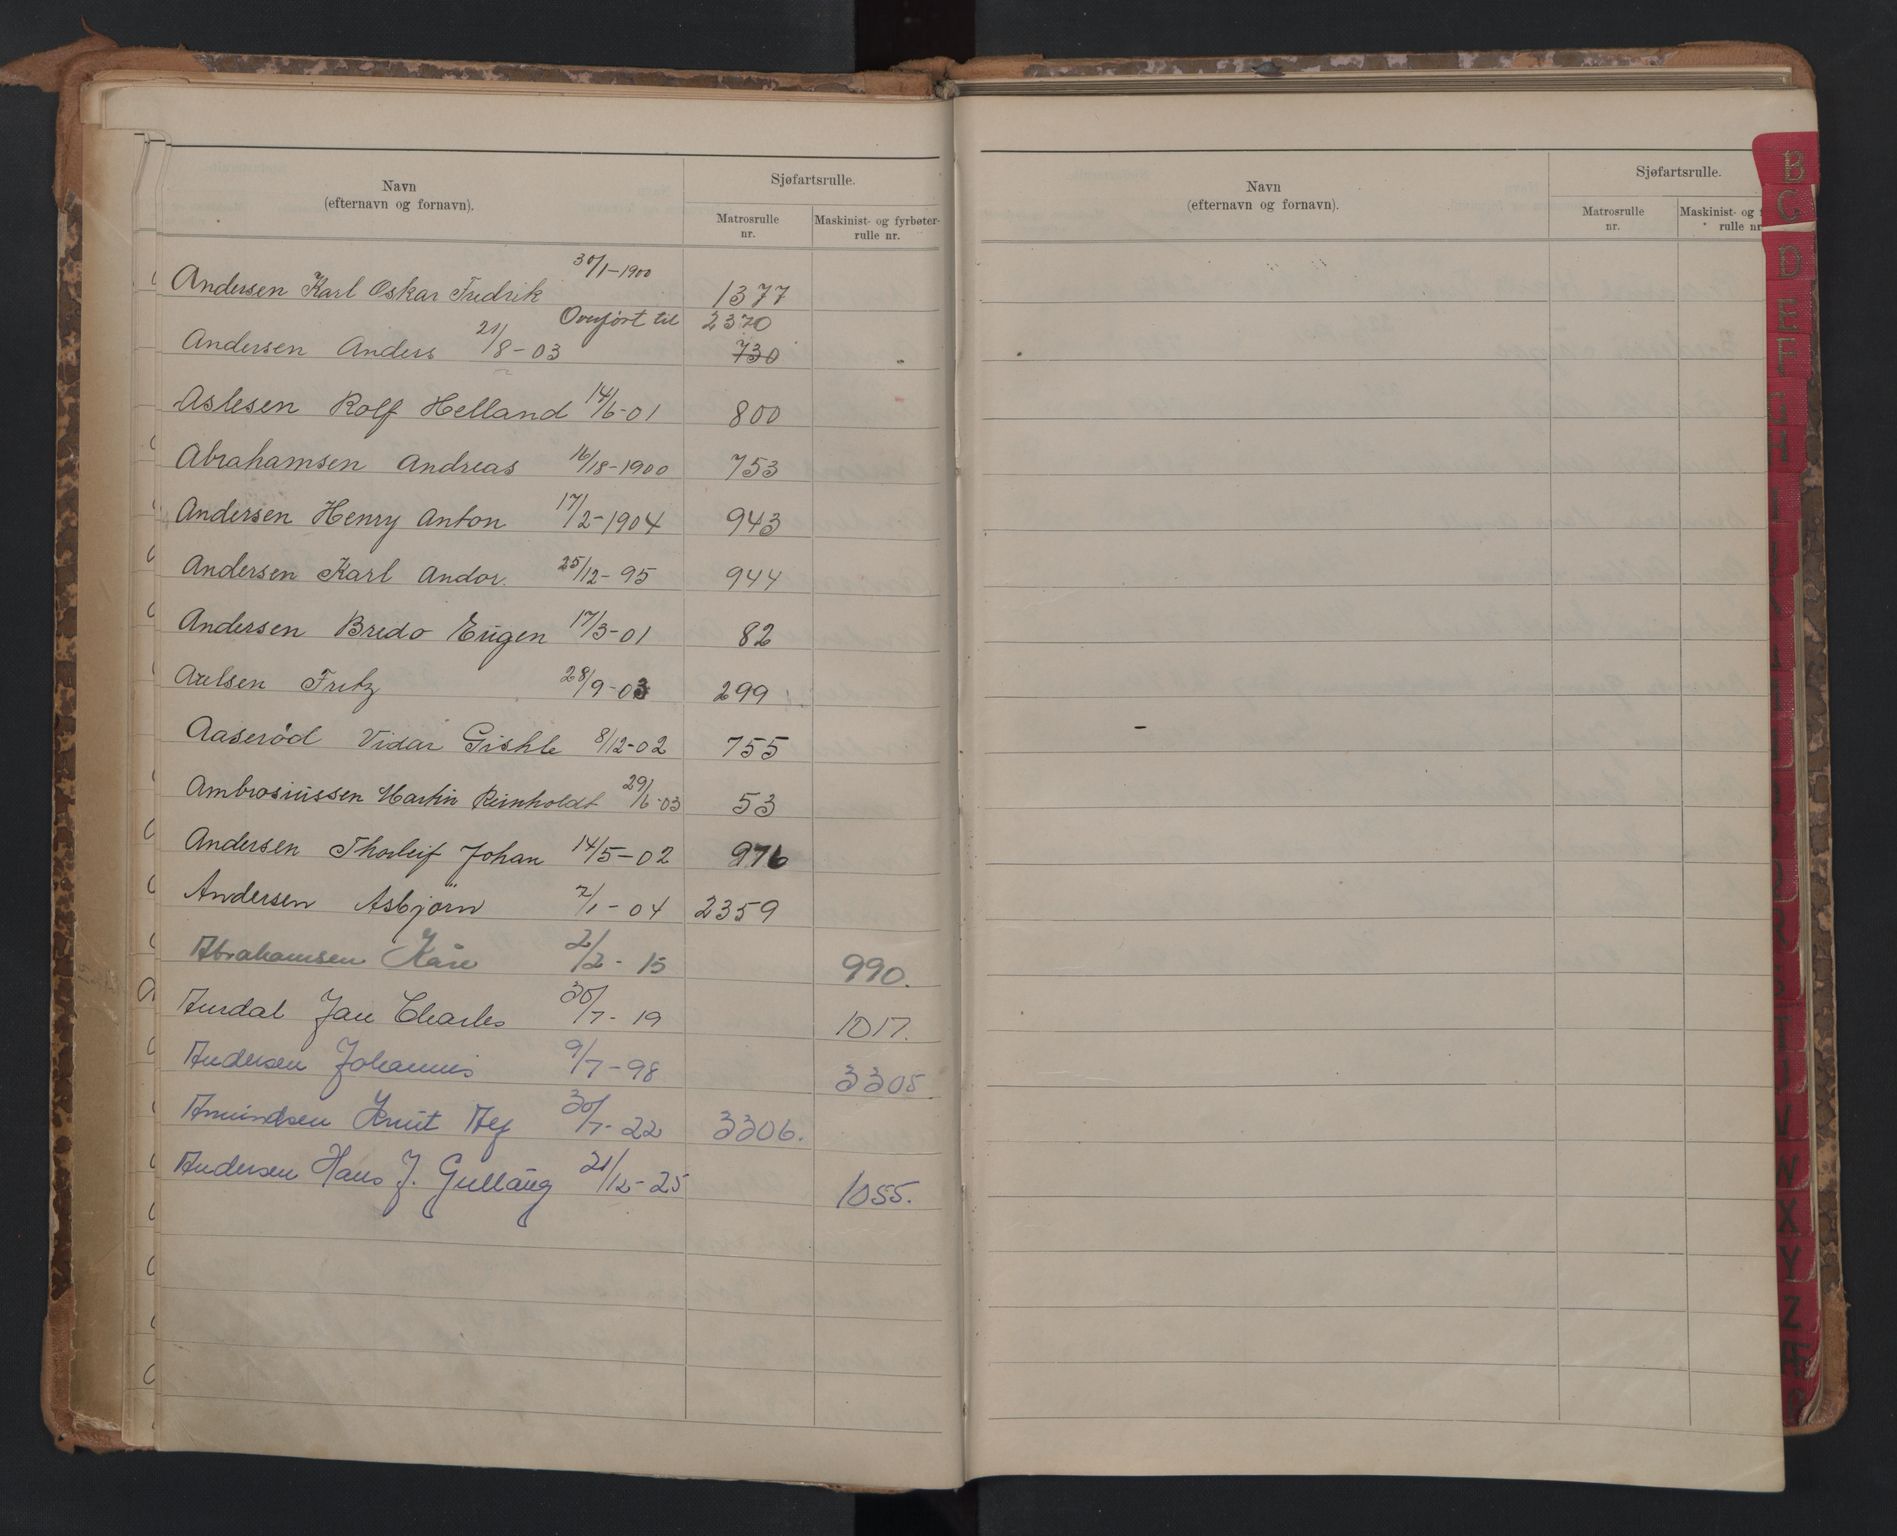 Navn
(efternavn og fornavn).
Sjøfartsrulle.
Matrosrulle nr.
Maskinist- og fyrbøter-rulle nr.
Andersen Karl Oskar Fredrik 30/1-1900 1377
Overført til 2370
Andersen Anders 21/8-03 730
Aslesen Rolf Helland 14/6-01 800
Abrahamsen Andreas 16/18-1900 753
Andersen Henry Anton 17/2-1904 943
Andersen Karl Andor. 25/12-95 944
Andersen Bredo Eugen 17/3-01 82
Axelsen Fritz 28/9-03 299
Aaserød Vidar 8/12-02 755
Ambrosiussen Martin Reinholdt 29/6-03 53
Andersen Thorleif Johan 14/5-02 976
Andersen Asbjörn 2/1-04 2359
Abrahamsen Kåre 2/2-15 990.
Jan Charles 30/7-19 1017.
Andersen Johannes 9/7-98 3305
Amundsen Knut Alf 30/7-22 3306.
Andersen Hans J. Gullaug 21/12-25 1055.
Navn
(efternavn og fornavn).
Sjøfartsrulle.
Matrosrulle nr.
Maskinist- og f
rulle nr
B
C
D
E
F
V
W
X
Y
Z
Æ